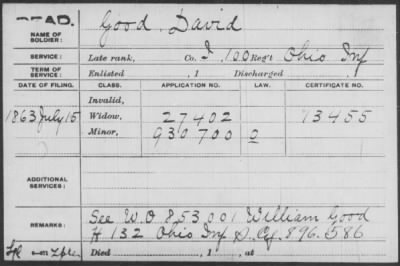 DEAD.
Good, David
NAME OF SOLDIER:
SERVICE: Late rank, Co. I, 100 Reg't Ohio Inf
TERM OF SERVICE: Enlisted , 1 Discharged , 1
DATE OF FILING. CLASS. APPLICATION NO. LAW. CERTIFICATE NO.
Invalid,
1863 July 15 Widow, 27402 73455
Minor, 930700
ADDITIONAL SERVICES:
See W.O 853001 William Good
REMARKS: H 132 Ohio Inf S. Cf. 896.586
Died , 1 , at